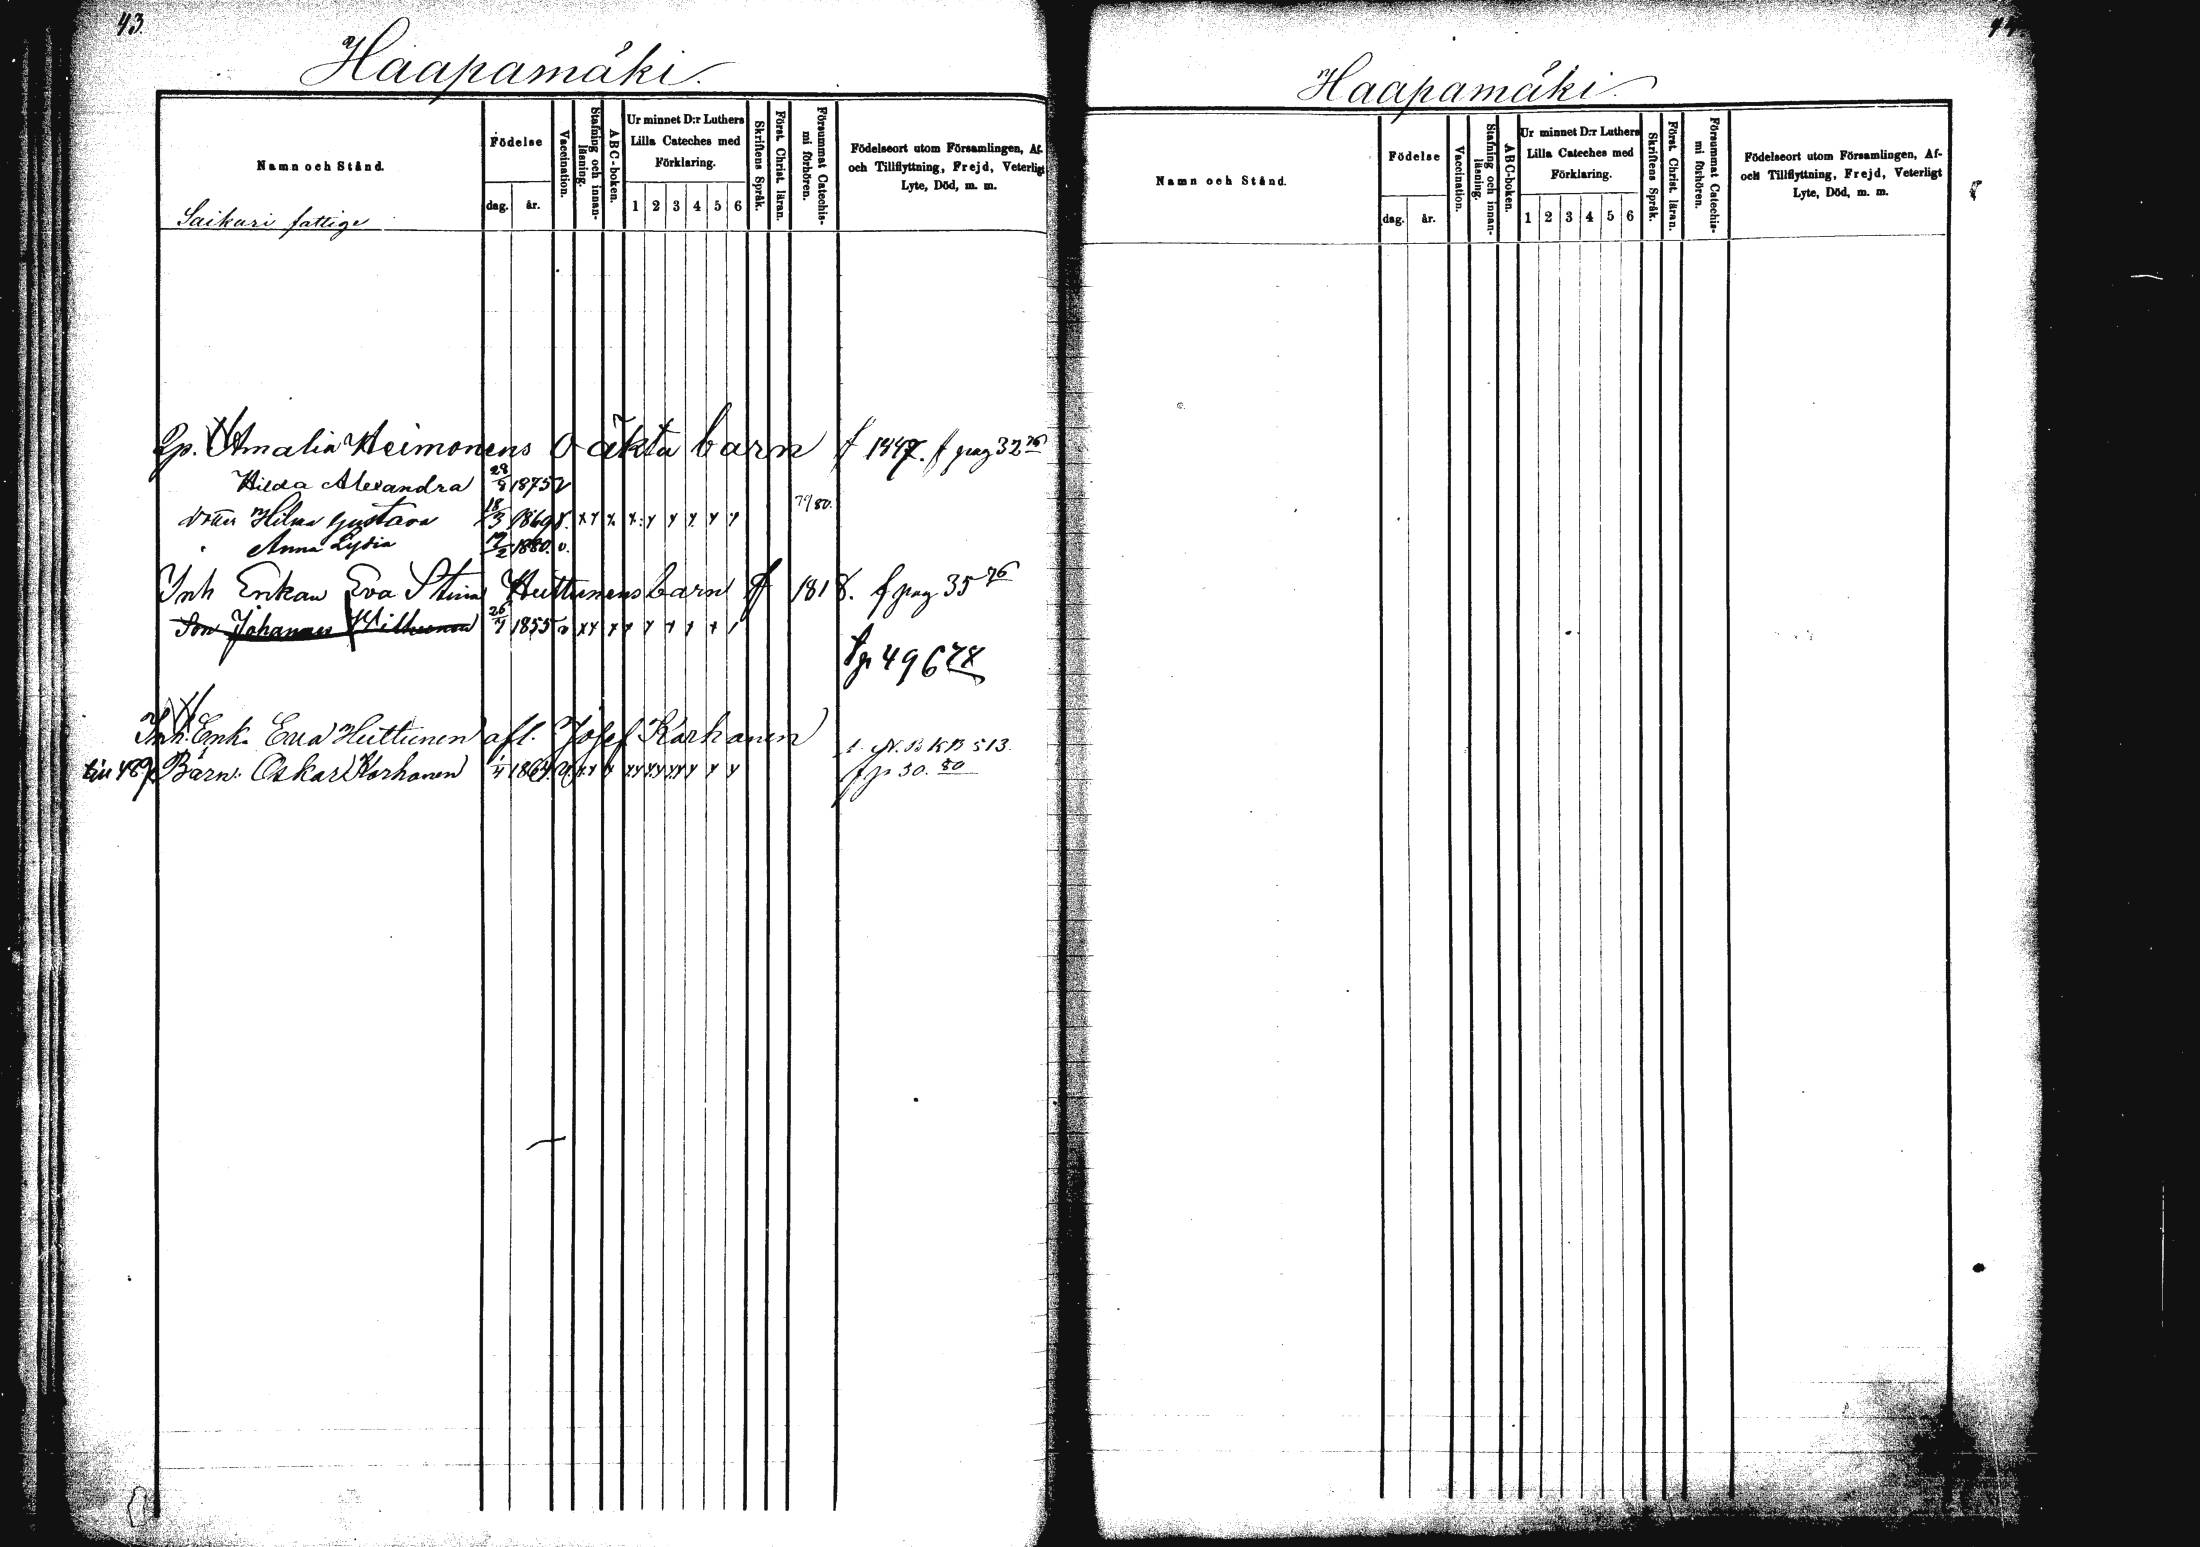 43.
Haapamäki.
Namn och Stånd.
Födelse
dag.
år.
Vaccination.
Stafning och innan-
läsning.
ABC-boken.
Ur minnet D:r Luthers
Lilla Cateches med
Förklaring.
1 2 3 4 5 6
Skriftens Språk.
Först. Christ. läran.
Försummat Catechis-
mi förhören.
Födelseort utom Församlingen, Af-
och Tillflyttning, Frejd, Veterligt
Lyte, Död, m. m.
Saikari fattige
Amalia Heimonens oäkta barn f 1847. f pag 32 76
Hilda Alexandra 28/8 1875 v
Hilma Gustava 18/3 1869 79/80.
Anna Lydia 1880. v.
Inh Enkan Eva Stina Huttunens barn f 1818. f pag 35 76
Son Johannes 26/7 1855 v
496 78
Inh. Enk. Eva Huttunen afl. Josef Korhonen
Barn: Oskar Korhonen 1864 p 50. 80
Haapamäki
Namn och Stånd.
Födelse
dag.
år.
Vaccination.
Stafning och innan-
läsning.
ABC-boken.
Ur minnet D:r Luthers
Lilla Cateches med
Förklaring.
1 2 3 4 5 6
Skriftens Språk.
Först. Christ. läran.
Försummat Catechis-
mi förhören.
Födelseort utom Församlingen, Af-
och Tillflyttning, Frejd, Veterligt
Lyte, Död, m. m.